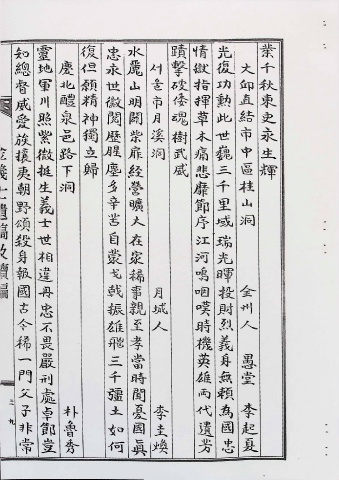 業千秋東史永生輝
大邱直轄市中區桂山洞 金州人 愚堂 李起夏
光復功勳此世巍三千里域瑞光暉投財烈義身無賴為國忠
情獄指揮草木痛悲靡節序江河嗚咽嘆時機英雄兩代遺芳
蹟擊破倭魂樹武威
서울市月溪洞 月城人 李圭煥
水麗山明闢柴扉經營曠夫在家稀事親至孝當時聞憂國眞
忠永世徽閱歷腥塵多辛苦自蒙戈戟振雄飛三千疆土如何
復但願精神獨立歸
慶北醴泉邑路下洞 朴魯秀
靈地軍川照紫微挺生義士世相違丹忠不畏嚴刑處卓節豈
知總督威愛族攘夷朝野頌殺身報國古今稀一門父子非常
義士遺稿